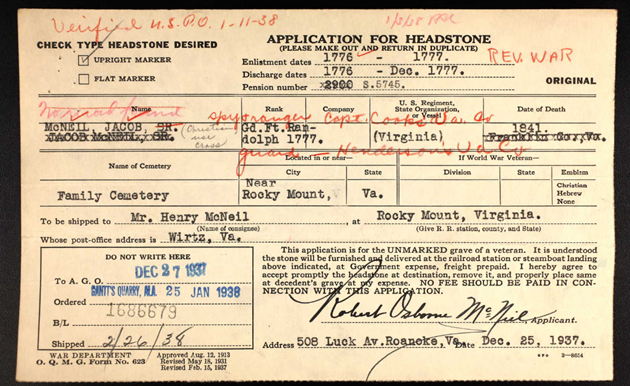 Verified U.S.P.O. 1-11-38
CHECK TYPE HEADSTONE DESIRED
UPRIGHT MARKER
FLAT MARKER
APPLICATION FOR HEADSTONE
(PLEASE MAKE OUT AND RETURN IN DUPLICATE)
Enlistment dates 1776 - 1777.
Discharge dates 1776 - Dec. 1777.
Pension number x2900 S.5745.
REV. WAR
ORIGINAL
Name
Rank
Company
U. S. Regiment,
State Organization,
or Vessel
Date of Death
spy & ranger Capt. Cooks Va. Co
McNEIL, JACOB, SR.
JACOB McNEIL, SR.
(Christian
cross)
Gd.Ft.Ran-
dolph 1777.
(Virginia)
1841.
Franklin Co., Va.
guard - Hendersons Va. Co
Name of Cemetery
Located in or near—
City
State
If World War Veteran—
Division
Emblem
Christian
Hebrew
None
Family Cemetery
Near
Rocky Mount,
Va.
To be shipped to Mr. Henry McNeil at Rocky Mount, Virginia.
(Name of consignee)
(Give R. R. station, county, and State)
Whose post-office address is Wirtz, Va.
DO NOT WRITE HERE
DEC 27 1937
To A. G. O.
GANTT'S QUARRY, ALA. 25 JAN 1938
Ordered
1686679
B/L
Shipped 2/26/38
This application is for the UNMARKED grave of a veteran. It is understood
the stone will be furnished and delivered at the railroad station or steamboat landing
above indicated, at Government expense, freight prepaid. I hereby agree to
accept promptly the headstone at destination, remove it, and properly place same
at decedent's grave at my expense. NO FEE SHOULD BE PAID IN CON-
NECTION WITH THIS APPLICATION.
Robert Osborne McNeil, Applicant.
Address 508 Luck Av. Roanoke, Va. Dec. 25, 1937.
WAR DEPARTMENT
O. Q. M. G. Form No. 623
Approved Aug. 12, 1913
Revised May 18, 1931
Revised Feb. 15, 1937
GPO 2—8614